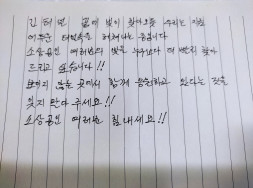 긴 터널 끝에 빛이 찾아오듯 우리는 지금
어두운 터널속을 헤쳐나가는 중입니다
소상공인 여러분의 빛을 누구보다 더 빨리 찾아
드리고 싶습니다!!
보이지 않는 곳에서 함께 응원하고 있다는 것을
잊지 말아 주세요!!
소상공인 여러분 힘내세요!!